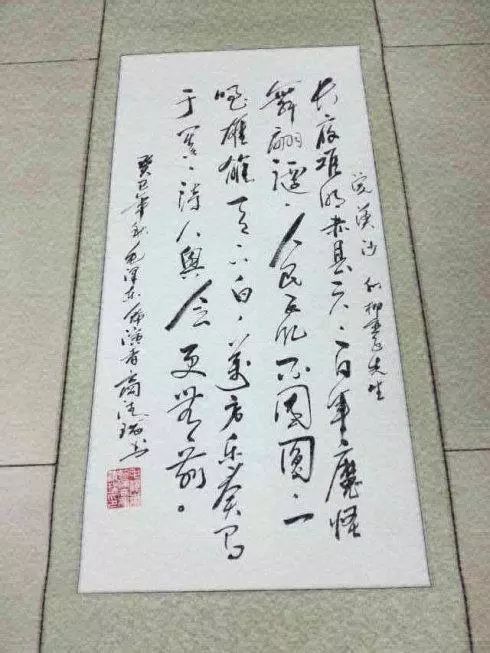 浣溪沙 和柳亚子先生
长夜难明赤县天、百年魔怪
舞翩躚、人民五亿不團圓、一
唱雄雞天下白、万方乐奏有
于阗、詩人興会更无前。
癸巳年秋毛泽东饰演者商清瑞书